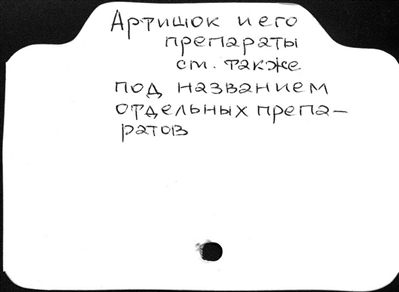 Артишок и его
препараты
см. также
под названием
отдельных препа-
ратов